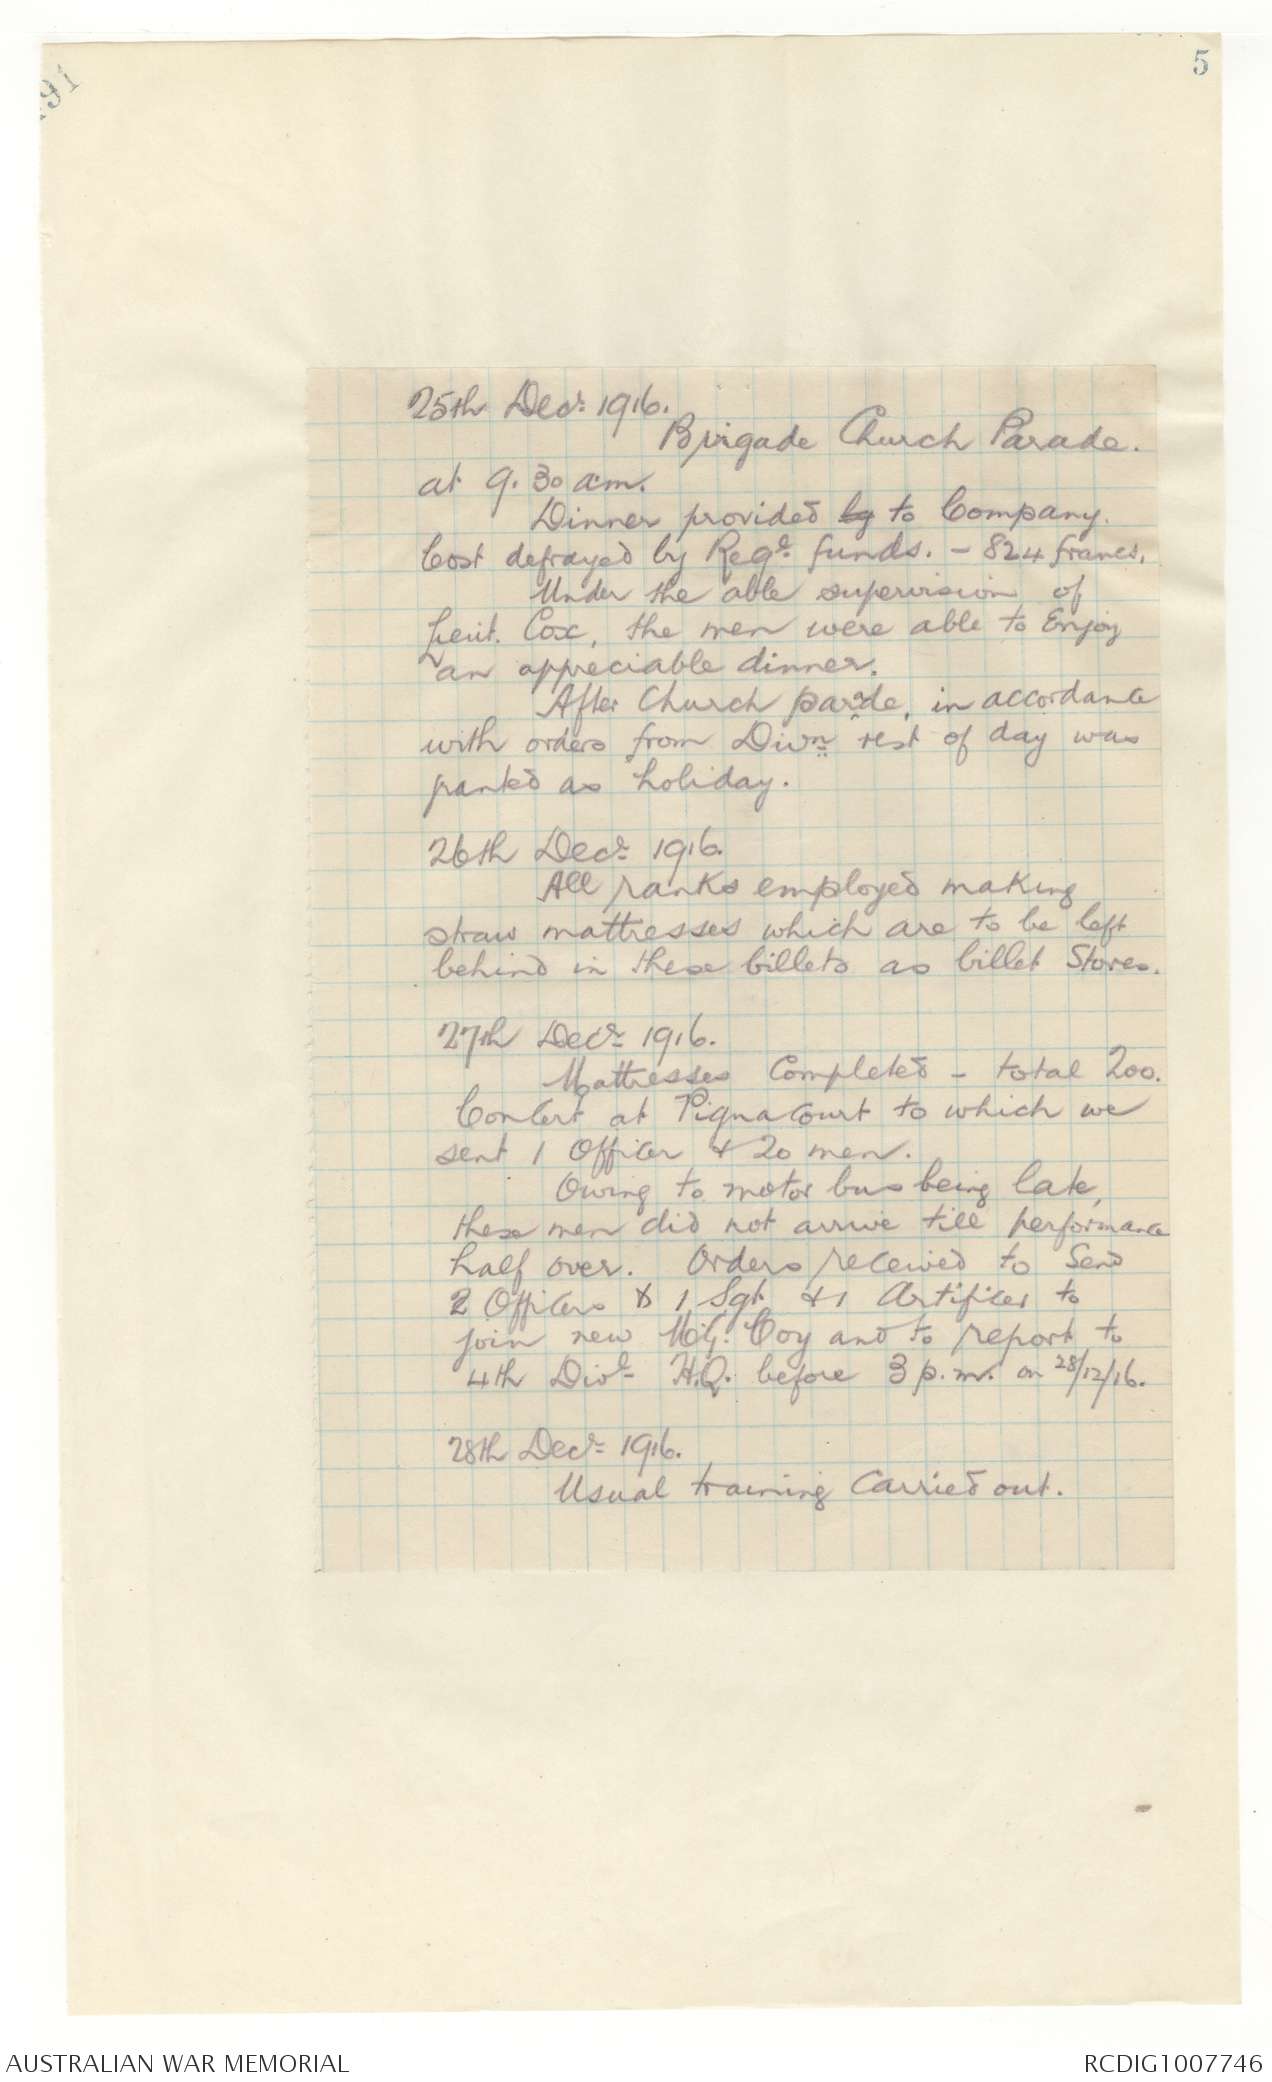 91
5
25th Decr. 1916.
Brigade Church Parade.
at 9.30 a.m.
Dinner provided by to Company.
Cost defrayed by Regl. funds. - 824 francs.
Under the able supervision of
Lieut. Cox, the men were able to Enjoy
an appreciable dinner.
After Church parade, in accordance
with orders from Divn rest of day was
granted as holiday.
26th Decr. 1916.
All ranks employed making
straw mattresses which are to be left
behind in these billets as billet Stores.
27th Decr. 1916.
Mattresses Completed - total 200.
Concert at Pignacourt to which we
sent 1 Officer & 20 men.
Owing to motor bus being late,
these men did not arrive till performance
half over. Orders received to Send
2 Officers & 1 Sgt. & 1 Artificer to
join new M.G. Coy and to report to
4th Divl. H.Q. before 3 p.m. on 28/12/16.
28th Decr. 1916.
Usual training Carried out.
AUSTRALIAN WAR MEMORIAL
RCDIG1007746